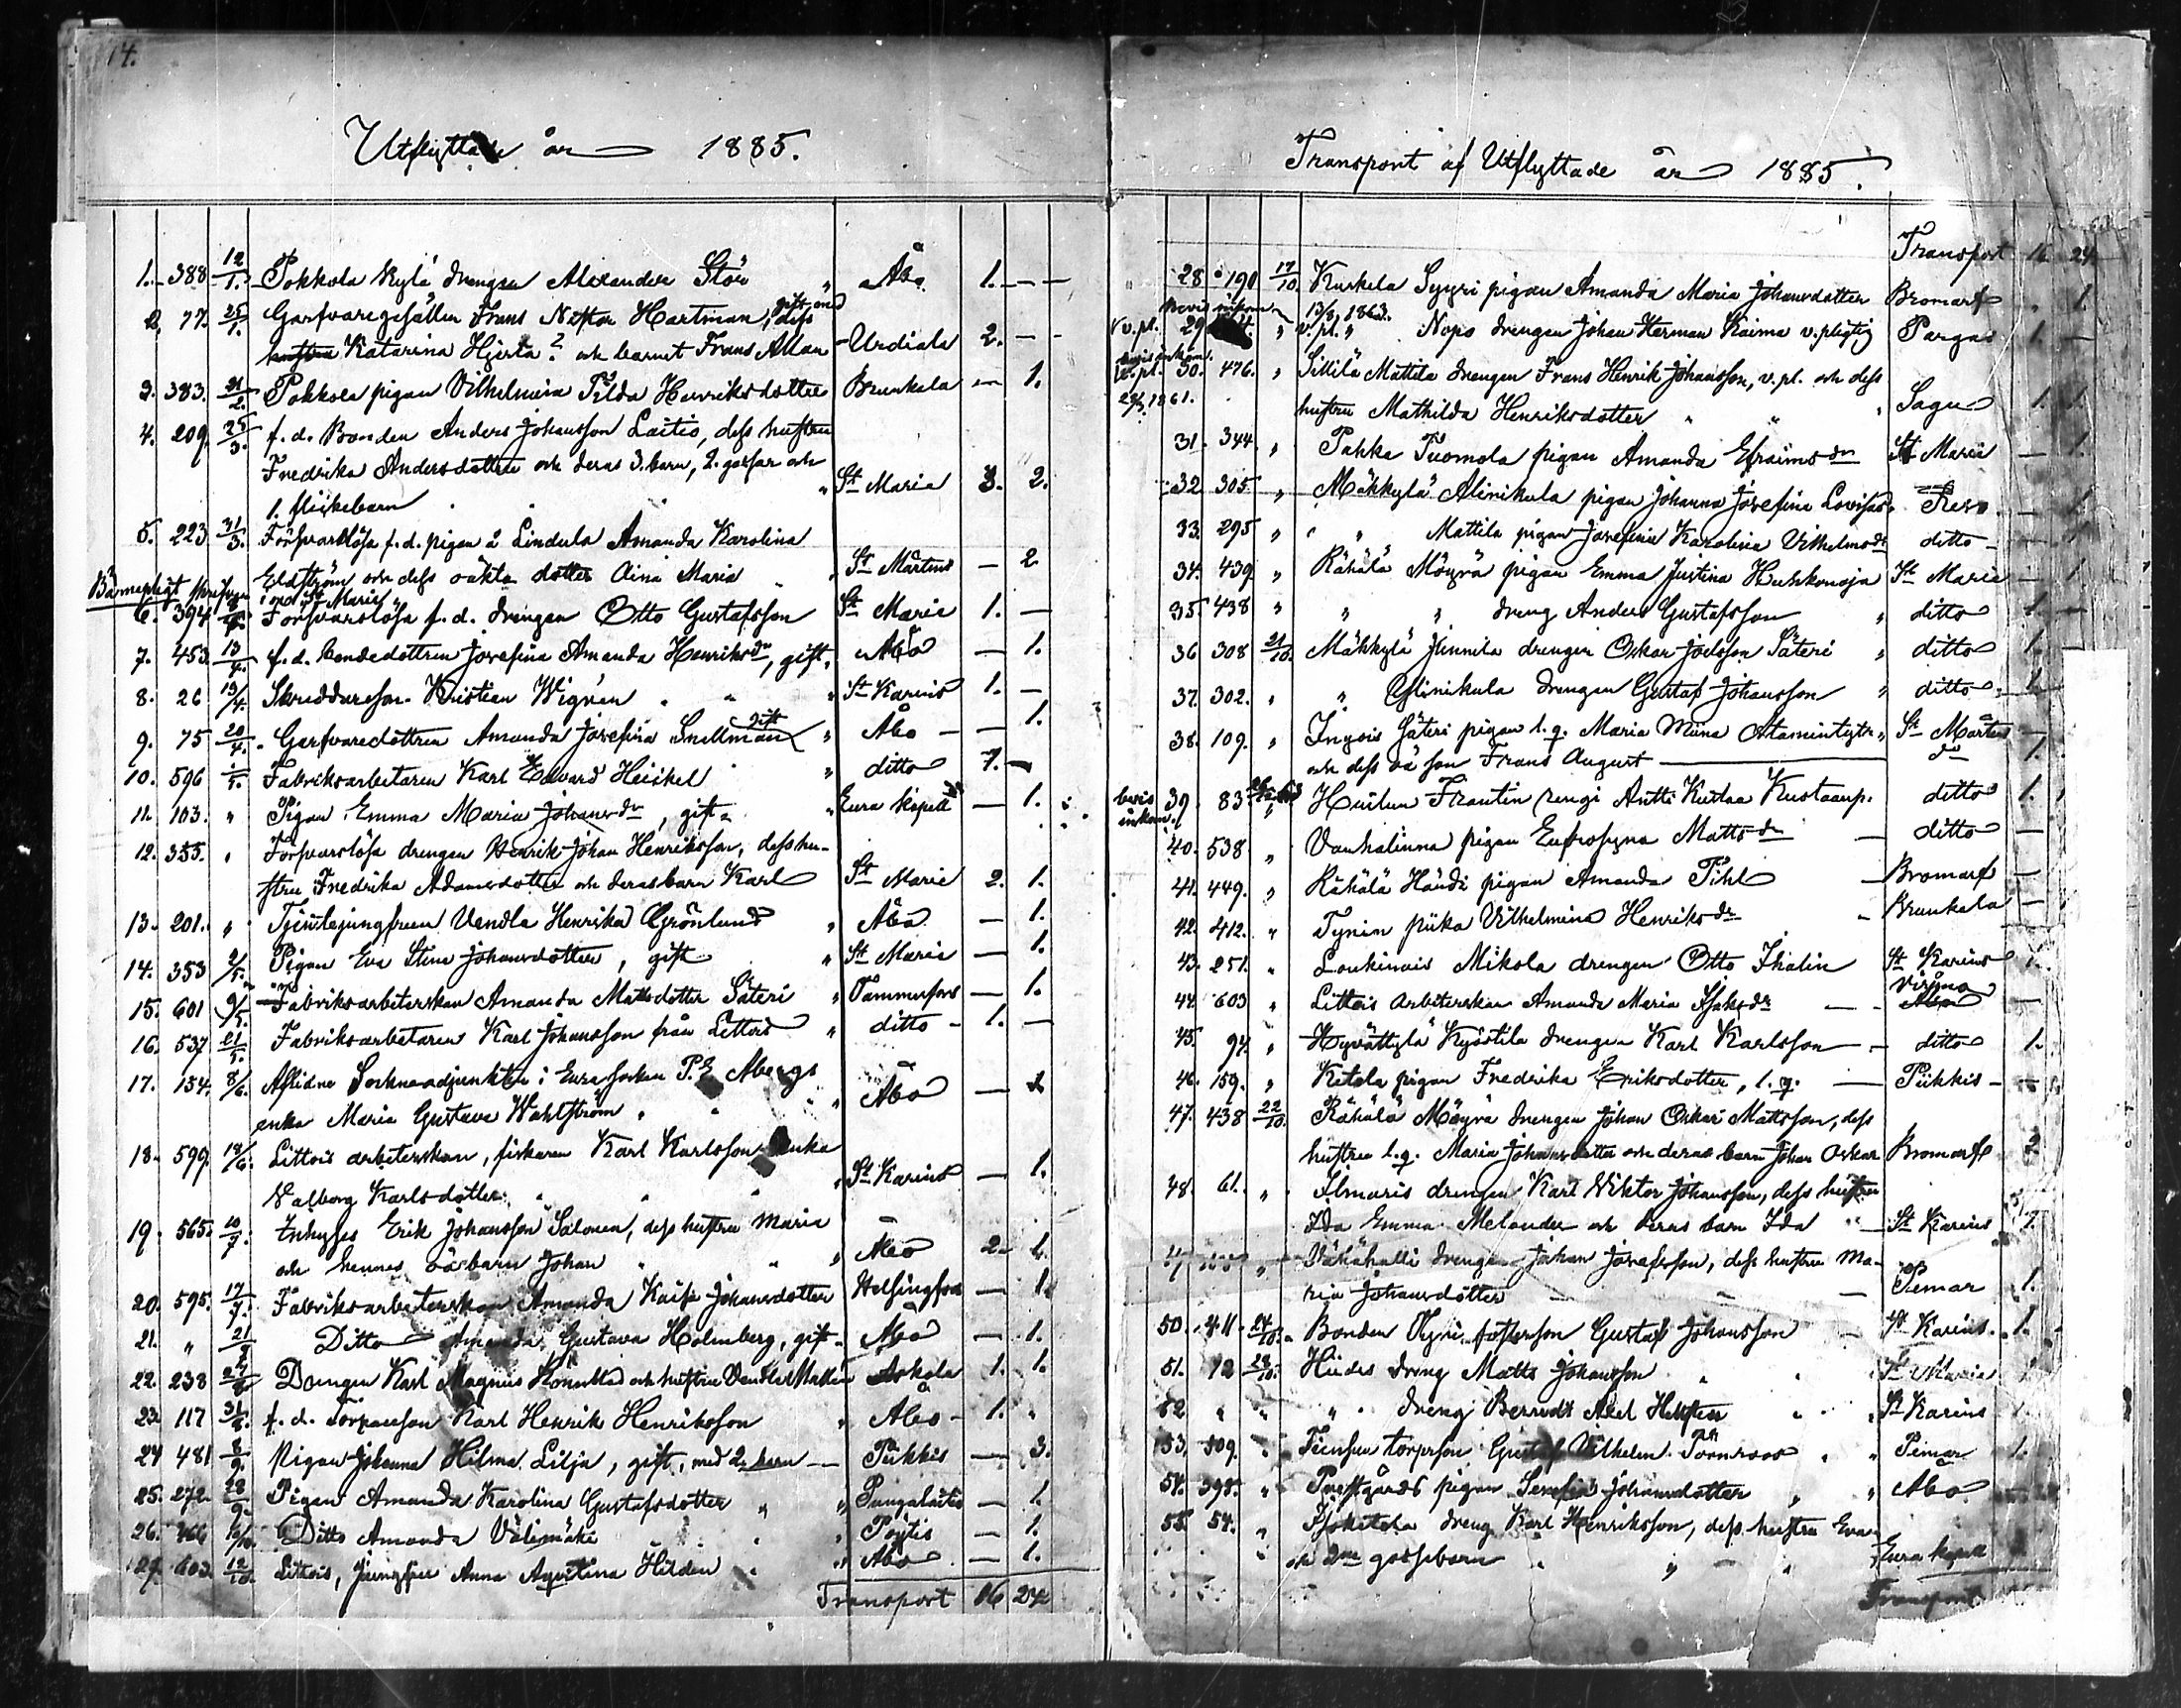 14.
Utflyttade år 1885.
1. 388 12/1. Pokkola Kylä drengen Alexander Stör " Åbo 1. —
2. 77. 25/1. Garfvaregesällen Frans Nestor Hartman, gift med dess
hustru Katarina Hjerta? och barnet Frans Allan Urdiala 2. —
3. 383. 21/2. Pokkola pigan Vilhelmina Tilda Henriksdotter Brunkala — 1.
4. 209. 25/3. f. d. Bonden Anders Johansson Laitio, dess hustru
Fredrika Andersdotter och deras 3. barn, 2. gossar och
1. flickebarn " St Maria 3. 2.
5. 223 31/3. Försvarslösa f. d. pigan å Lindula Amanda Karolina
Eldström och dess oäkta dotter Aina Maria " St Mårtens — 2
i St Marie
6. 394 Försvarslösa f. d. drengen Otto Gustafsson St Marie 1. —
7. 453. 13/4. f. d. bondedottren Josefina Amanda Henriksdr, gift. Åbo — 1.
8. 26 19/4. Skreddaresson Kristian Wigren " St Karins 1. —
9. 75 20/4. Garfvaredottren Amanda Josefina Snellman gift " Åbo — 1.
10. 596 1/5. Fabriksarbetaren Karl Edvard Heickel " ditto 1. —
11. 103. " Pigan Emma Maria Johansdr, gift " Eura kapell — 1.
12. 355. " Försvarslösa drengen Henrik Johan Henriksson, dess hu-
stru Fredrika Adamsdotter och deras barn Karl St Marie 2. 1.
13. 201. " Tjenstejungfrun Vendla Henrika Grönlund " Åbo — 1.
14. 353 2/5. Pigan Eva Stina Johansdotter, gift " St Maria — 1.
15. 601 9/5. Fabriksarbeterskan Amanda Matsdotter Säteri " Tammerfors — 1.
16. 537 21/5. Fabriksarbetaren Karl Johansson från Littois " ditto 1. —
17. 154. 8/6. Aflidne Sockneadjunkten i Eura socken P. E. Abergs
enka Maria Gustava Wahlström " Åbo — 1
18. 599. 18/6. Littois arbeterskan, fiskaren Karl Karlssons enka
Valborg Karlsdotter " St Karins — 1.
19. 565. 10/7. Inhyses Erik Johansson Salonen, dess hustru Maria
och hennes oä barn Johan " Åbo 2. 1.
20. 595. 17/7. Fabriksarbeterskan Amanda Kaisa Johansdotter Helsingfors — 1.
21. " Ditto Amanda Gustava Holmberg, gift Åbo — 1.
22. 238 Drengen Karl Magnus och hustru Askola 1. 1.
23. 117 31/8. f. d. Torparesson Karl Henrik Henriksson " Åbo 1. "
24 481 8/9. Pigan Johanna Hilma Lilja, gift, med 2. barn — Piikkis — 3.
25. 272. 28/9. Pigan Amanda Karolina Gustafsdotter " " Pungalaitio — 1.
26. 466 Ditto Amanda Välimäki " Pöjtis — 1.
27. 603. 12/10. Littois, Jungfru Anna Agustina Hilden " " Åbo — 1.
Transport 16 24
Transport af Utflyttade år 1885.
Transport 16 24
28. 190 17/10. Kurkela Syyri pigan Amanda Maria Johansdotter Bromarf " 1.
v. pl. 29 " v. pl. " 13/3 1863. Nopo drengen Johan Herman Kaima v. pligtig Pargas 1. —
bevis inkom.
v. pl. 30. 476. " Sillilä Mattila drengen Frans Henrik Johansson, v. pl. och dess
1861. hustru Mathilda Henriksdotter " " Sagu 1. 1.
31. 344. " Pahka Tuomola pigan Amanda Efraimsdr St Marie — 1.
32 305. " Mäkkylä Alinikula pigan Johanna Josefina Lovisad. Reso. — 1.
33. 295 " " " Mattila pigan Josefina Karolina Vilhelmsdr ditto — 1.
34. 439. " Räkälä Möyrä pigan Emma Justina Huhkonoja St Marie — 1.
35. 438 " " " dreng Anders Gustafsson " ditto 1. —
36 308 21/10. Mäkkylä Junnila drengen Oskar Joelsson Säteri " ditto 1.
37. 302. " " Alinikula drengen Gustaf Johansson " ditto 1.
38. 109. " Ingois Säteri pigan l. q. Maria Miina Atamintytr St Mårtens
och dess oä son Frans August dn 1.
bevis inkom. 39. 83. " Huilun Frantin rengi Antti Kustaa Kustaanp. ditto 1.
40. 538 " Vanhalinna pigan Eufrosyna Mattsdr — ditto —
41. 449. " Räkälä Händi pigan Amanda Pihl — Bromarf —
42. 412. " Tynin piika Vilhelmina Henriksdr — Brunkala —
43. 251. " Loukinais Mikola drengen Otto Ihalin St Karins 1.
44. 603 " Littois arbeterskan Amanda Maria Isaksdr — Virmo —
45. 94. " Hyvättylä Kyöstilä drengen Karl Karlsson — ditto 1.
46. 159. " Ketola pigan Fredrika Eriksdotter, l. q. — Piikkis —
47. 438 22/10. Räkälä Möyrä drengen Johan Oskar Mattsson, dess
hustru l. q. Maria Johansdotter och deras barn Johan Oskar Bromarf 2
48. 61. " Ilmaris drengen Karl Viktor Johansson, dess hustru
Ida Emma Melander och deras barn Ida " — St Karins 1.
" Vähähalli drengen Johan Josefsson, dess hustru Ma-
ria Johansdotter — — Piemar 1.
50. 411. 24/10. Bonden fosterson Gustaf Johansson — St Karins 1.
51. 12 28/10. Hiides dreng Matts Johansson " St Marie 1
52 " " " dreng Berndt Axel " St Karins 1
53. 509. " torpson Gustaf Vilhelm Törnroos " " Pimar 1.
54. 398. " Prestgårds pigan Serafia Johansdotter " " Åbo
55. 54. " Isoketola dreng Karl Henriksson, dess hustru Eva
och 2ne gossebarn " " " Eura kapell
Transport